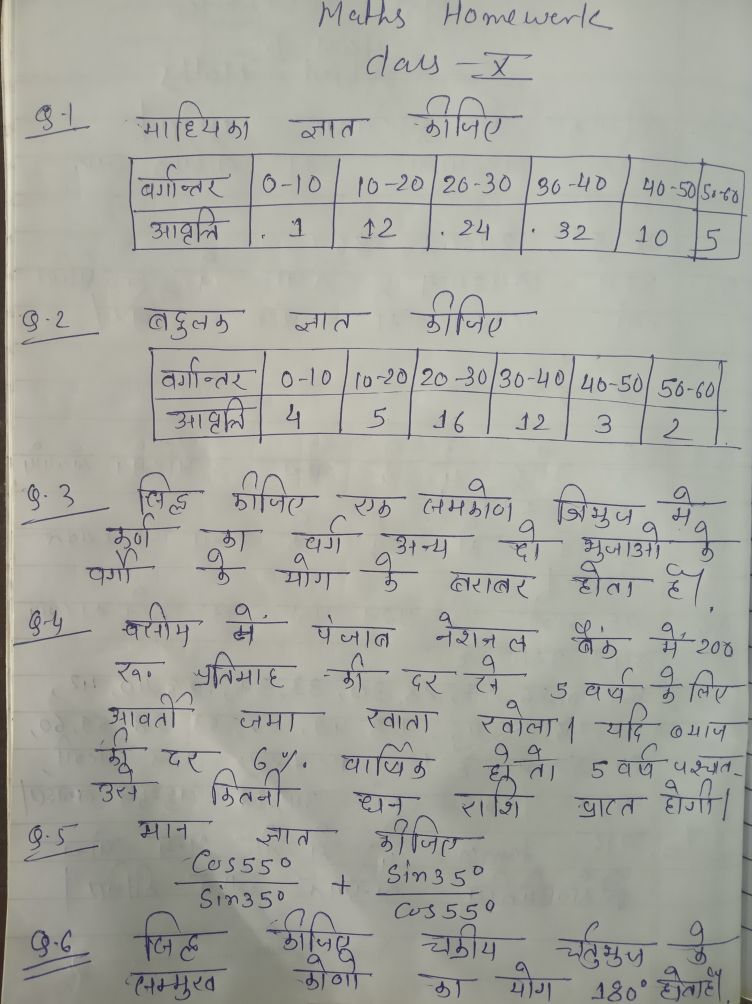 Maths Homework
class - X
Q-1 माध्यिका ज्ञात कीजिए
वर्गान्तर 0-10 10-20 20-30 30-40 40-50 50-60
आवृत्ति 1 12 24 32 10 5
Q-2 बहुलक ज्ञात कीजिए
वर्गान्तर 0-10 10-20 20-30 30-40 40-50 50-60
आवृत्ति 4 5 16 12 3 2
Q-3 सिद्ध कीजिए एक समकोण त्रिभुज में
कर्ण का वर्ग अन्य दो भुजाओ के
वर्गो के योग के बराबर होता है।
Q-4 वसीम ने पंजाब नेशनल बैंक में 200
रु० प्रतिमाह की दर से 5 वर्ष के लिए
आवर्ती जमा खाता खोला। यदि ब्याज
की दर 6%. वार्षिक हो तो 5 वर्ष पश्चात-
उसे कितनी धन राशि प्राप्त होगी।
Q-5 मान ज्ञात कीजिए
Cos55° / Sin35° + Sin35° / Cos55°
Q-6 सिद्ध कीजिए चक्रीय चर्तुभुज के
सम्मुख कोणो का योग 180° होता है।